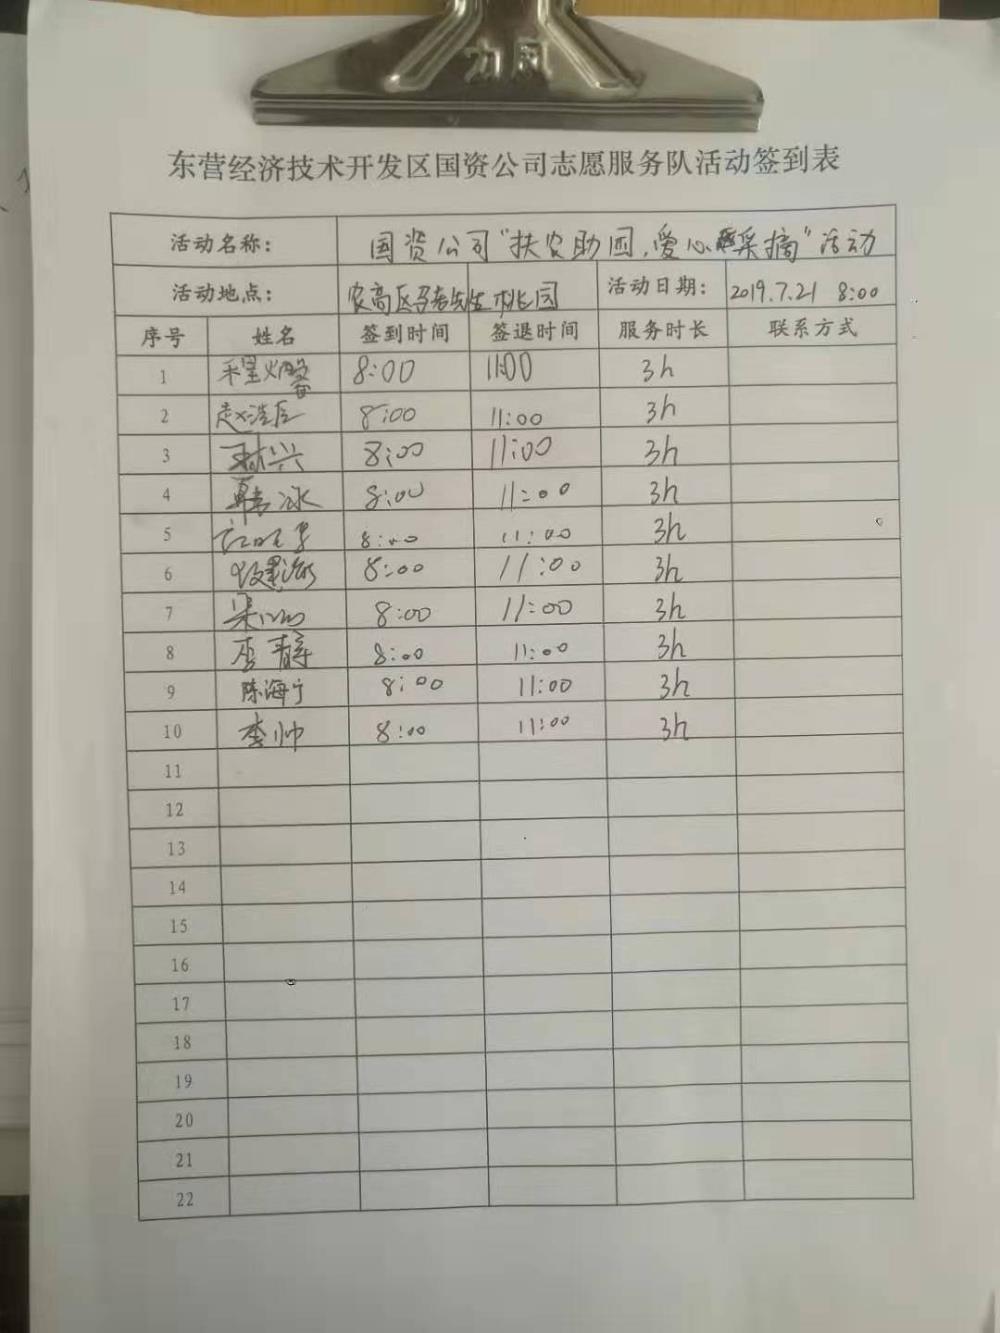 力风
东营经济技术开发区国资公司志愿服务队活动签到表
活动名称： 国资公司“扶农助困，爱心采摘”活动
活动地点： 农高区 先生桃园 活动日期： 2019.7.21 8:00
序号 姓名 签到时间 签退时间 服务时长 联系方式
1 8:00 11:00 3h
2 8:00 11:00 3h
3 8:00 11:00 3h
4 韩冰 8:00 11:00 3h
5 8:00 11:00 3h
6 8:00 11:00 3h
7 8:00 11:00 3h
8 李静 8:00 11:00 3h
9 陈海宁 8:00 11:00 3h
10 李帅 8:00 11:00 3h
11
12
13
14
15
16
17
18
19
20
21
22